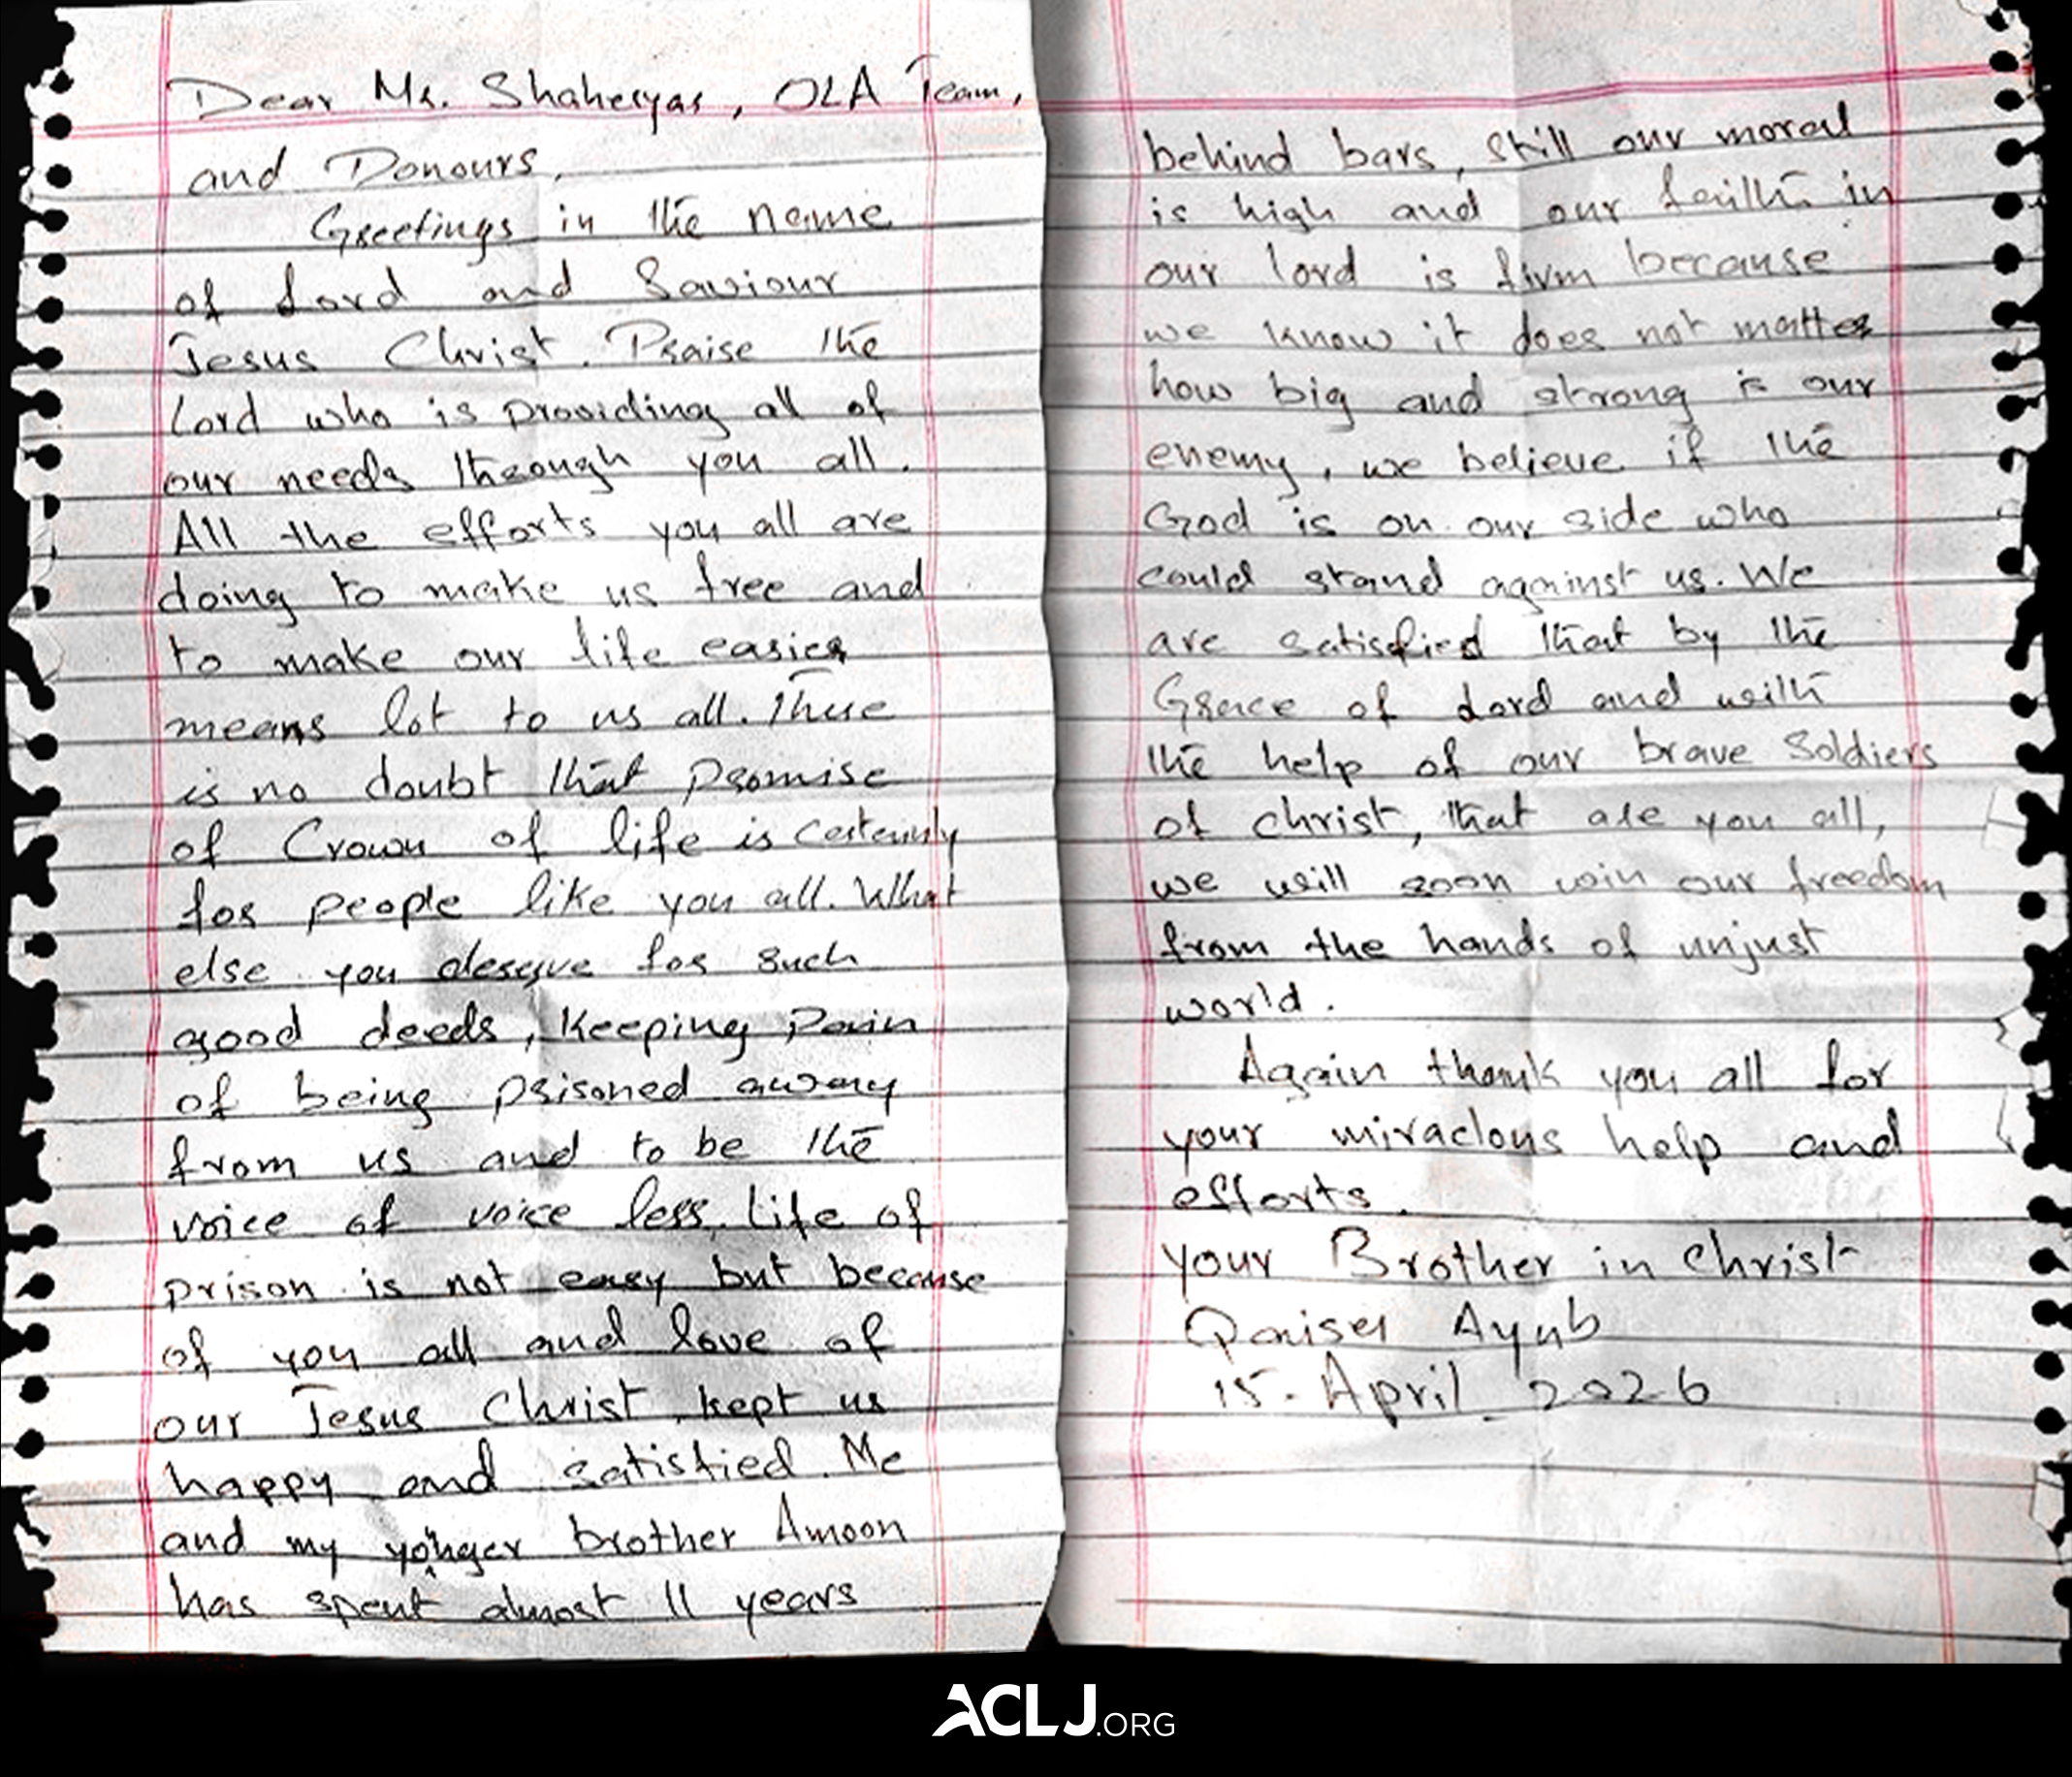 Dear Mr. Shaheryar, OLA Team,
and Donours,
Greetings in the name
of Lord and Saviour
Jesus Christ. Praise the
Lord who is providing all of
our needs through you all.
All the efforts you all are
doing to make us free and
to make our life easier
means lot to us all. There
is no doubt that promise
of Crown of life is certainly
for people like you all. What
else you deserve for such
good deeds, keeping pain
of being prisoned away
from us and to be the
voice of voice less. Life of
prison is not easy but because
of you all and love of
our Jesus Christ kept us
happy and satisfied. Me
and my younger brother Amoon
has spent almost 11 years
behind bars, still our moral
is high and our faith in
our lord is firm because
we know it does not matter
how big and strong is our
enemy, we believe if the
God is on our side who
could stand against us. We
are satisfied that by the
Grace of Lord and with
the help of our brave Soldiers
of christ, that are you all,
we will soon win our freedom
from the hands of unjust
world.
Again thank you all for
your miraclous help and
efforts.
your Brother in Christ
Qaiser Ayub
15- April 2026
ACLJ.ORG